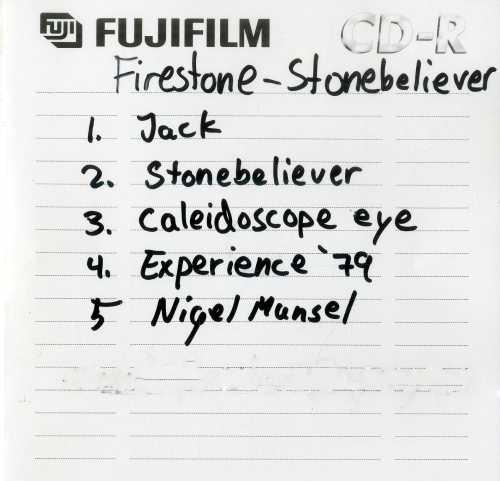 FUJI FUJIFILM CD-R
Firestone-Stonebeliever
1. Jack
2. Stonebeliever
3. Caleidoscope eye
4. Experience '79
5 Nigel Mansel